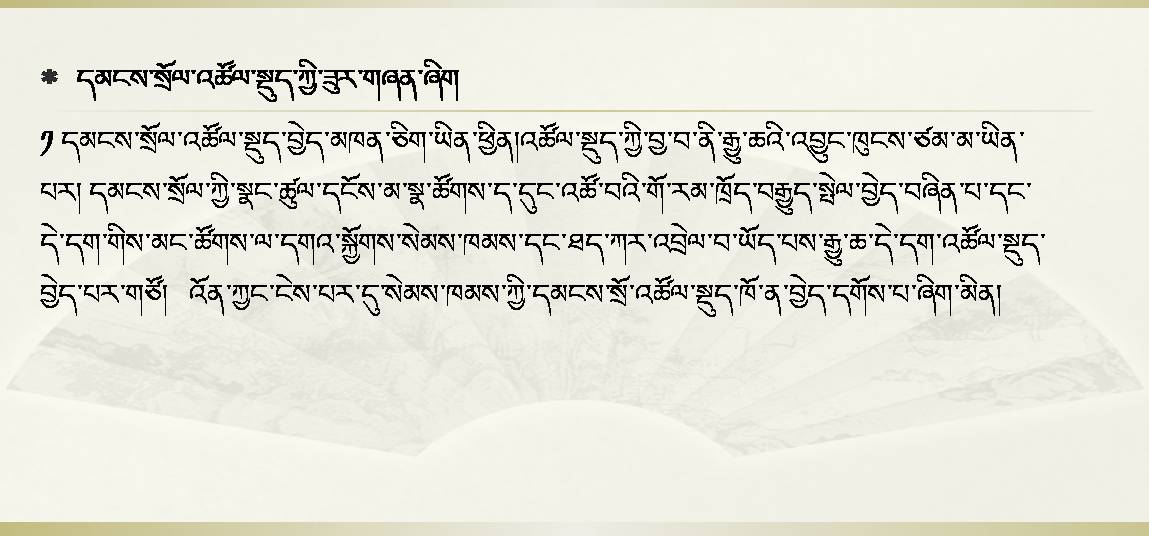 དམངས་སྲོལ་འཚོལ་སྡུད་ཀྱི་ཟུར་གཞན་ཞིག
༡ དམངས་སྲོལ་འཚོལ་སྡུད་བྱེད་མཁན་ཅིག་ཡིན་ཕྱིན།འཚོལ་སྡུད་ཀྱི་བྱ་བ་ནི་རྒྱུ་ཆའི་འབྱུང་ཁུངས་ཙམ་མ་ཡིན་
པར། དམངས་སྲོལ་ཀྱི་སྣང་ཚུལ་དངོས་མ་སྣ་ཚོགས་ད་དུང་འཚོ་བའི་གོ་རམ་ཁྲོད་བརྒྱུད་སྤེལ་བྱེད་བཞིན་པ་དང་
དེ་དག་གིས་མང་ཚོགས་ལ་དགའ་སྐྱོགས་སེམས་ཁམས་དང་ཐད་ཀར་འབྲེལ་བ་ཡོད་པས་རྒྱུ་ཆ་དེ་དག་འཚོལ་སྡུད་
བྱེད་པར་གཙོ། འོན་ཀྱང་ངེས་པར་དུ་སེམས་ཁམས་ཀྱི་དམངས་སྲོ་འཚོལ་སྡུད་ཁོ་ན་བྱེད་དགོས་པ་ཞིག་མིན།